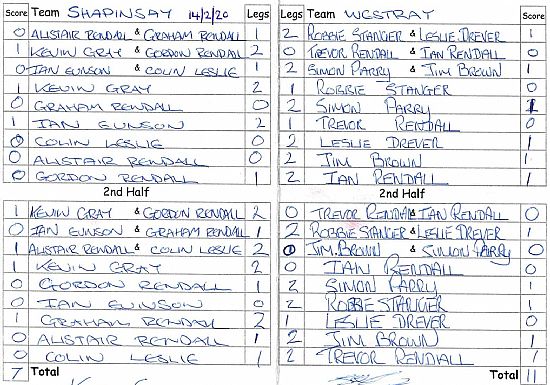 Score Team SHAPINSAY 14/2/20 Legs Legs Team WCSTRAY Score
0 ALISTAIR RENDALL & GRAHAM RENDALL 1 2 ROBBIE STANGER & LESLIE DREVER 1
1 KEVIN GRAY & GORDON RENDALL 2 0 TREVOR RENDALL & IAN RENDALL 0
0 IAN EUNSON & COLIN LESLIE 1 2 SIMON PARRY & JIM BROWN 1
1 KEVIN GRAY 2 1 ROBBIE STANGER 0
0 GRAHAM RENDALL 0 2 SIMON PARRY 1
1 IAN EUNSON 2 1 TREVOR RENDALL 0
0 COLIN LESLIE 0 2 LESLIE DREVER 1
0 ALISTAIR RENDALL 0 2 JIM BROWN 1
0 GORDON RENDALL 1 2 IAN RENDALL 1
2nd Half 2nd Half
1 KEVIN GRAY & GORDON RENDALL 2 0 TREVOR RENDALL & IAN RENDALL 0
0 IAN EUNSON & GRAHAM RENDALL 1 2 ROBBIE STANGER & LESLIE DREVER 1
1 ALISTAIR RENDALL & COLIN LESLIE 2 0 JIM BROWN & SIMON PARRY 0
1 KEVIN GRAY 2 0 IAN RENDALL 0
0 GORDON RENDALL 1 2 SIMON PARRY 1
0 IAN EUNSON 0 2 ROBBIE STANGER 1
1 GRAHAM RENDALL 2 1 LESLIE DREVER 0
0 ALISTAIR RENDALL 1 2 JIM BROWN 1
0 COLIN LESLIE 1 2 TREVOR RENDALL 1
7 Total Total 11